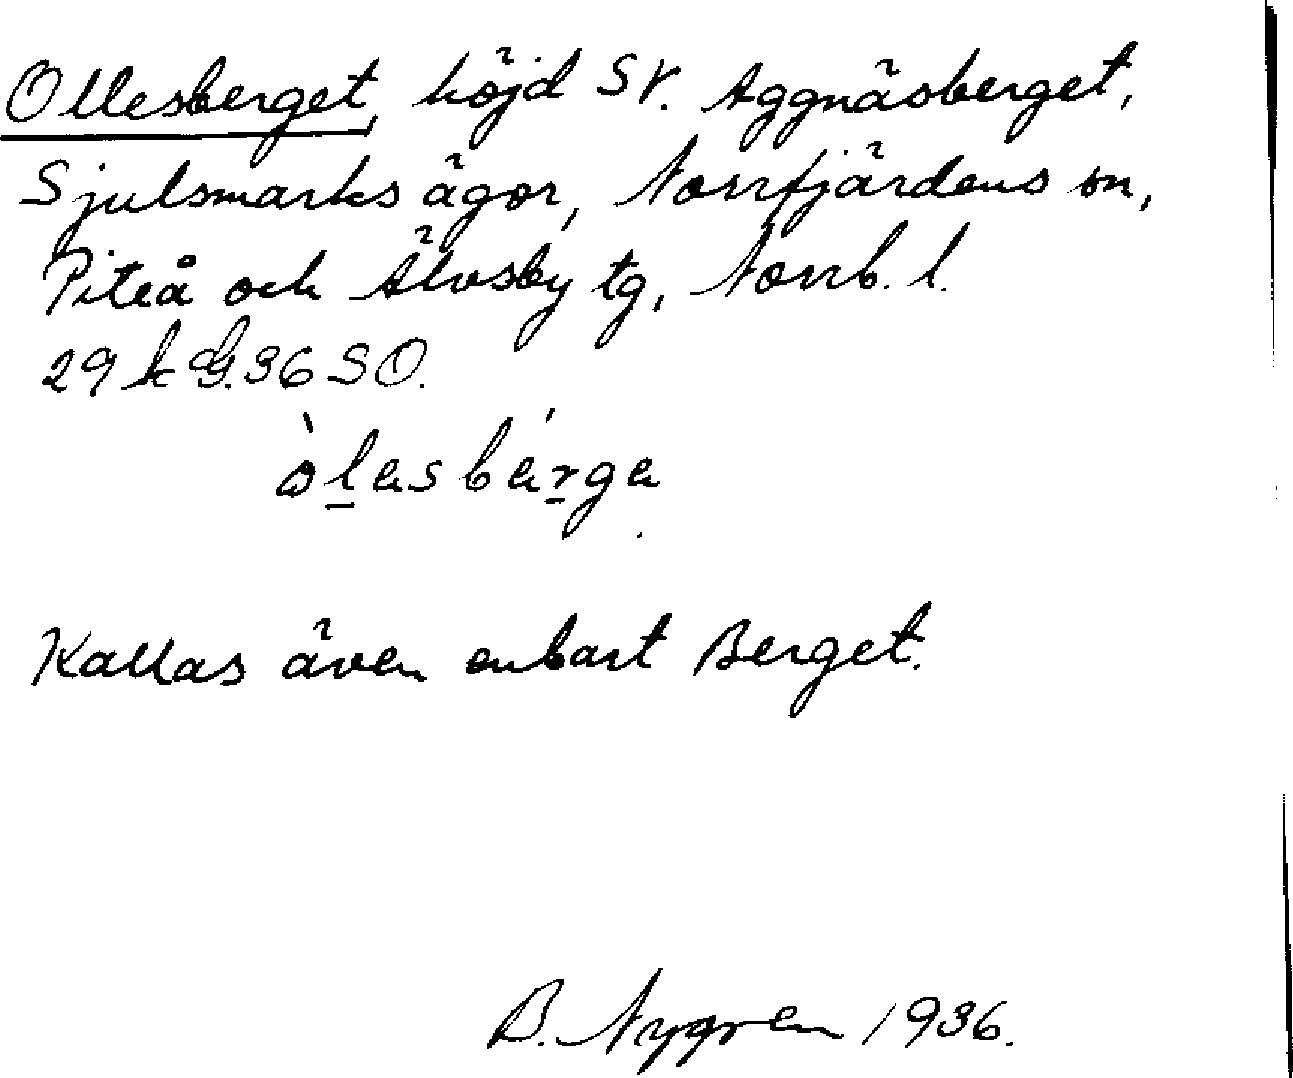 Ollesberget, höjd SV. Aggnäsberget,
Sjulsmarks ägor, Norrfjärdens sn,
Piteå och Älvsby tg, Norrb. l.
29 k G.36 SO.
òlesbérge
Kallas även enbart Berget.
B. Nygren 1936.